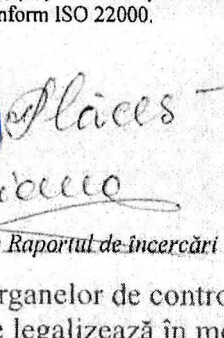 nform ISO 22000.
Plăces
Raportul de încercări
rganelor de contro
e legalizează în mo